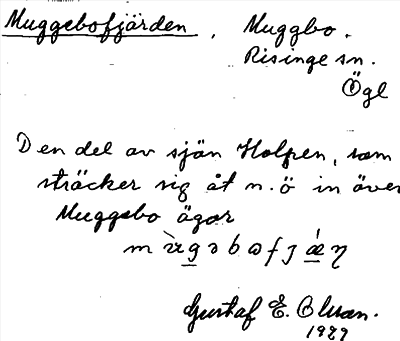 Muggebofjärden. Muggbo.
Risinge sn.
Ögl
Den del av sjön Holpen, som
sträcker sig åt n.ö in över
Muggebo ägor
Gustaf E. Olsson.
1929